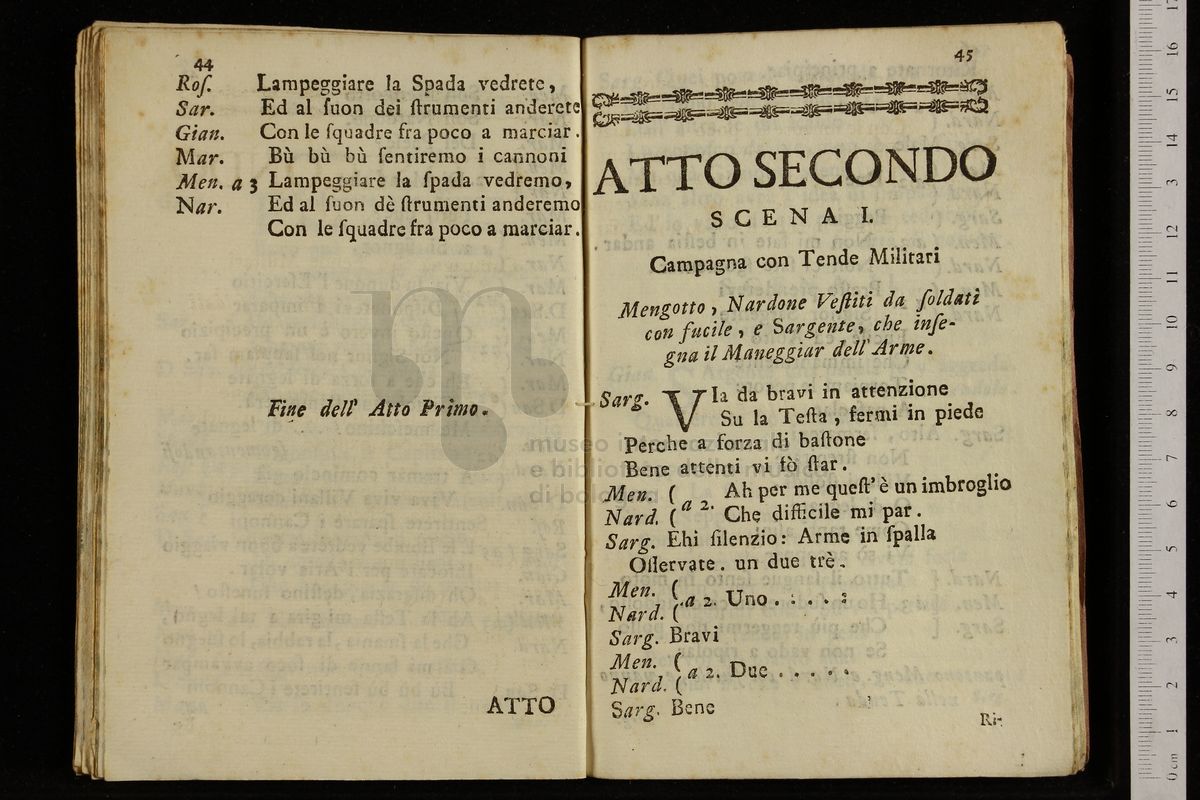 44
Roſ. Lampeggiare la Spada vedrete,
Sar. Ed al ſuon dei ſtrumenti anderete
Gian. Con le ſquadre fra poco a marciar.
Mar. Bù bù bù ſentiremo i cannoni
Men. a 3 Lampeggiare la ſpada vedremo,
Nar. Ed al ſuon dè ſtrumenti anderemo
Con le ſquadre fra poco a marciar.
Fine dell' Atto Primo.
ATTO
45
ATTO SECONDO
SCENA I.
Campagna con Tende Militari
Mengotto, Nardone Veſtiti da ſoldati
con fucile, e Sargente, che inſe-
gna il Maneggiar dell' Arme.
Sarg. VIa da bravi in attenzione
Su la Teſta, fermi in piede
Perche a forza di baſtone
Bene attenti vi fò ſtar.
Men. ( a 2. Ah per me queſt' è un imbroglio
Nard. ( Che difficile mi par.
Sarg. Ehi ſilenzio: Arme in ſpalla
Oſſervate. un due trè.
Men. (
Nard. ( a 2. Uno . . . . :
Sarg. Bravi
Men. (
Nard. ( a 2. Due . . . . .
Sarg. Bene
Ri-
museo internazionale
e biblioteca della musica
di bologna
0 cm 1 2 3 4 5 6 7 8 9 10 11 12 13 14 15 16 17